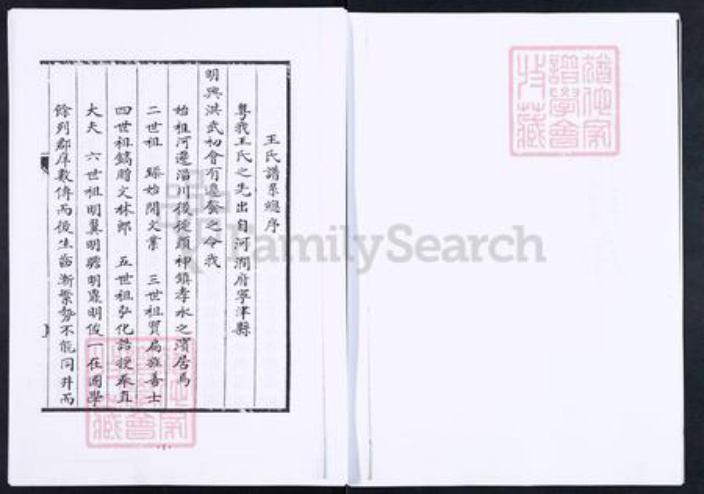 王氏譜系總序
粵我王氏之先出自河澗府寧津縣
明興洪武初會有遷發之令我
始祖河遷淄川後從顏神鎮孝水之濱居焉
二世祖 臻始開文業 三世祖賢扁旌善士
四世祖鎬贈文林郎 五世祖弘化誥授奉直
大夫 六世祖明翼明 明 明俊一在國學
餘列郡庠數傳而後生齒漸繁勢不能同井而
FamilySearch